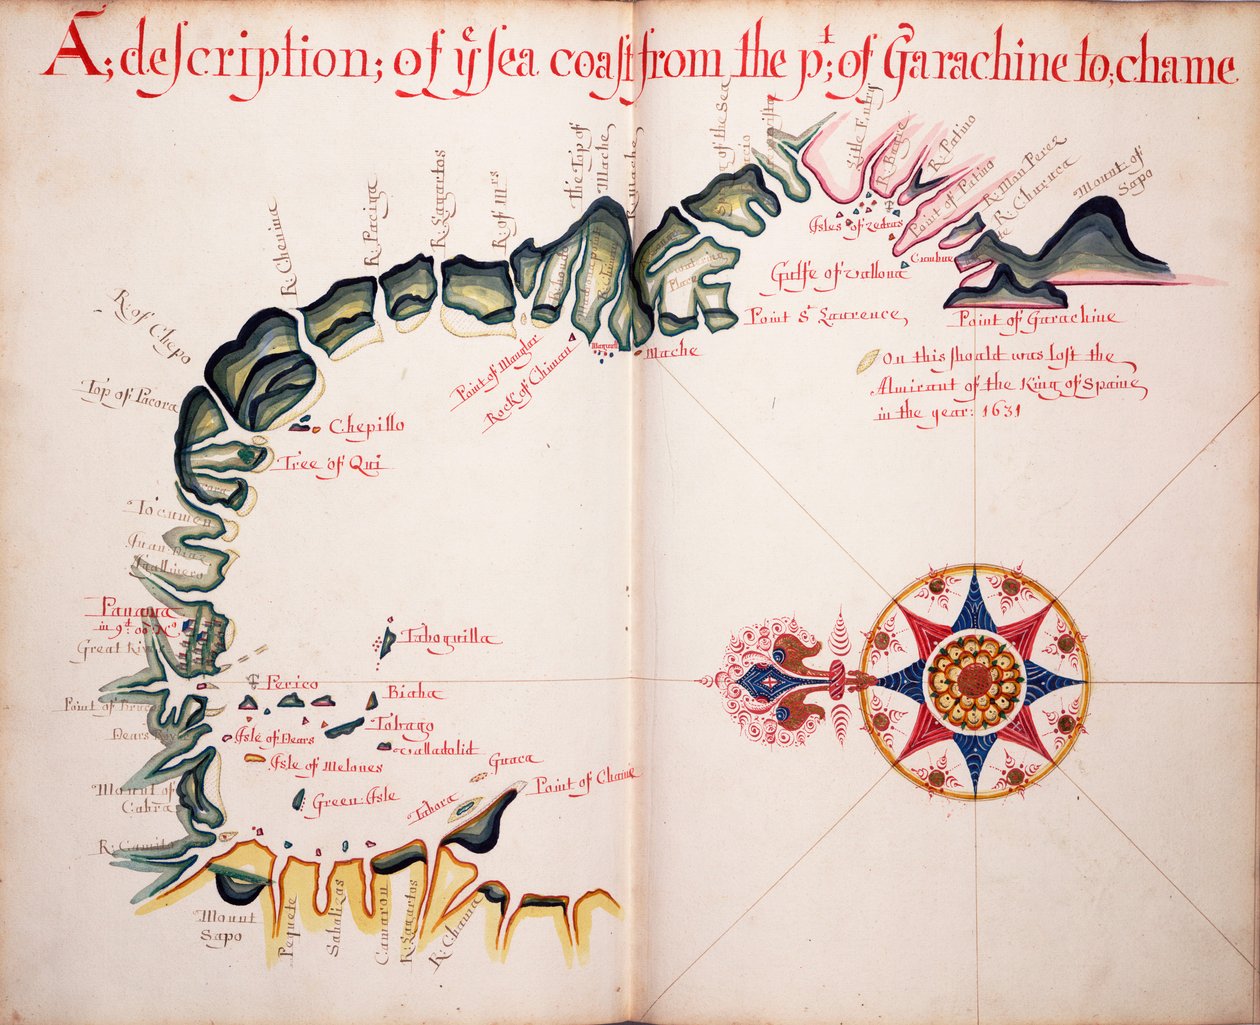 A; description; of yͤ sea coast from the pᵗ; of Garachine to; chame
R: Chepo
R: Chenina
R: Paciga
R: Lagartos
R: of Mʳˢ
the Top of
Mache
R: Mache
Little Entry
R: Bagre
R: Patino
Point of Patino
R: Man Perez
R: Churuca
Mount of
Sapo
Isles of Zedras
Gulfe of Vallona
Point Sᵗ Laurence
Point of Garachine
On this shoald was lost the
Almirant of the King of Spaine
in the year: 1631
Mache
Point of Manglar
Rock of Chiman
Top of Pacora
Chepillo
Tree of Qui
Tocumen
Juan Diaz
Gallinero
Panama
Great River
Taboguilla
Perico
Biaha
Point of
Tobago
Isle of Dears
Dears
Valladolid
Isle of Melones
Guaca
Point of Chame
Mount of
Cabra
Green: Isle
Tabora
R: Camito
Mount
Sapo
Pequete
Sabalizas
Camaron
R: Lagartos
R: Chama